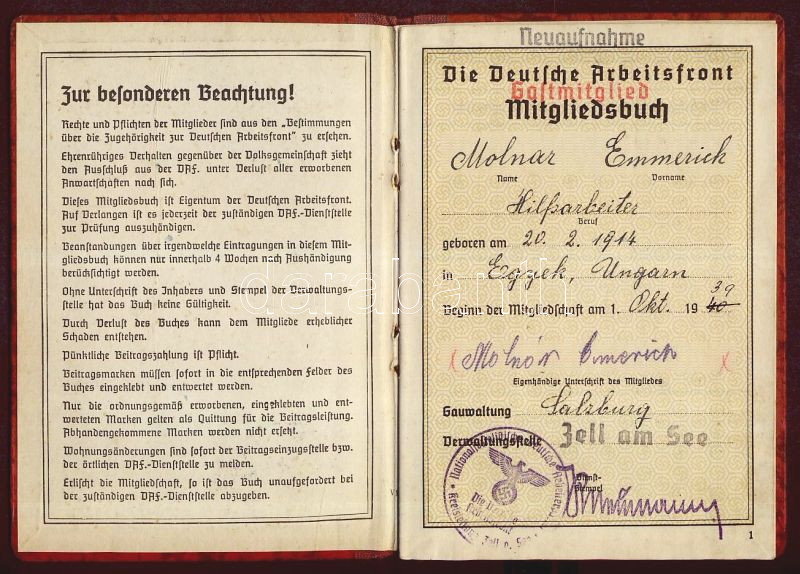 Zur besonderen Beachtung!
Rechte und Pflichten der Mitglieder sind aus den „Bestimmungen
über die Zugehörigkeit zur Deutschen Arbeitsfront" zu ersehen.
Ehrenrühriges Verhalten gegenüber der Volksgemeinschaft zieht
den Ausschluß aus der DAF. unter Verlust aller erworbenen
Anwartschaften nach sich.
Dieses Mitgliedsbuch ist Eigentum der Deutschen Arbeitsfront.
Auf Verlangen ist es jederzeit der zuständigen DAF.-Dienststelle
zur Prüfung auszuhändigen.
Beanstandungen über irgendwelche Eintragungen in diesem Mit-
gliedsbuch können nur innerhalb 4 Wochen nach Aushändigung
berücksichtigt werden.
Ohne Unterschrift des Inhabers und Stempel der Verwaltungs-
stelle hat das Buch keine Gültigkeit.
Durch Verlust des Buches kann dem Mitgliede erheblicher
Schaden entstehen.
Pünktliche Beitragszahlung ist Pflicht.
Beitragsmarken müssen sofort in die entsprechenden Felder des
Buches eingeklebt und entwertet werden.
Nur die ordnungsgemäß erworbenen, eingeklebten und ent-
werteten Marken gelten als Quittung für die Beitragsleistung.
Abhandengekommene Marken werden nicht ersetzt.
Wohnungsänderungen sind sofort der Beitragseinzugsstelle bzw.
der örtlichen DAF.-Dienststelle zu melden.
Erlischt die Mitgliedschaft, so ist das Buch unaufgefordert bei
der zuständigen DAF.-Dienststelle abzugeben.
Neuaufnahme
Die Deutsche Arbeitsfront
Gastmitglied
Mitgliedsbuch
Molnar Emmerich
Name Vorname
Hilfsarbeiter
Beruf
geboren am 20. 2. 1914
in Egyek, Ungarn
Beginn der Mitgliedschaft am 1. Okt. 19 40 39
Molnár Emerich
Eigenhändige Unterschrift des Mitgliedes
Gauwaltung Salzburg
Verwaltungsstelle Zell am See
Dienst-
stempel
Nationalsozialistische Deutsche
Die Deutsche
Zell a. See
1
darabanth